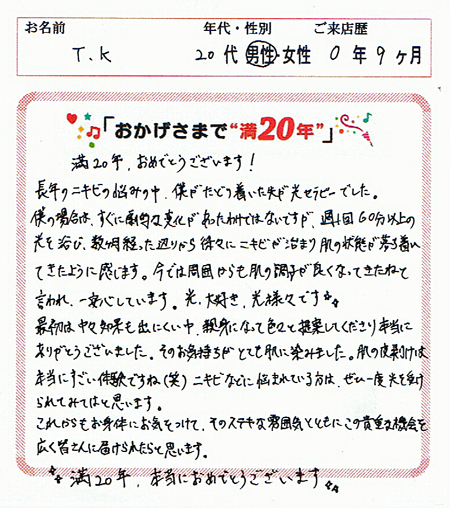 お名前 年代・性別 ご来店歴
T.K 20代 男性・女性 0年9ヶ月
「おかげさまで“満20年”」
満20年，おめでとうございます！
長年のニキビの悩みの中，僕がたどり着いた先が光セラピーでした。
僕の場合は，すぐに劇的な変化があったわけではないですが，週1回60分以上の
光を浴び，数ヶ月経った辺りから徐々にニキビが治まり肌の状態が落ち着い
てきたように感じます。今では周囲からも肌の調子が良くなってきたねと
言われ，一安心しています。光，大好き，光様々です
最初は中々効果も出にくい中，親身になって色々と提案してくださり本当に
ありがとうございました。そのお気持ちがとても肌に染みました。肌の皮剥けは
本当にすごい体験ですね(笑) ニキビなどに悩まれている方は，ぜひ一度光を受け
られてみてはと思います。
これからもお身体にお気をつけて，そのステキな雰囲気とともにこの貴重な機会を
広く皆さんに届けられたらと思います。
満20年，本当におめでとうございます